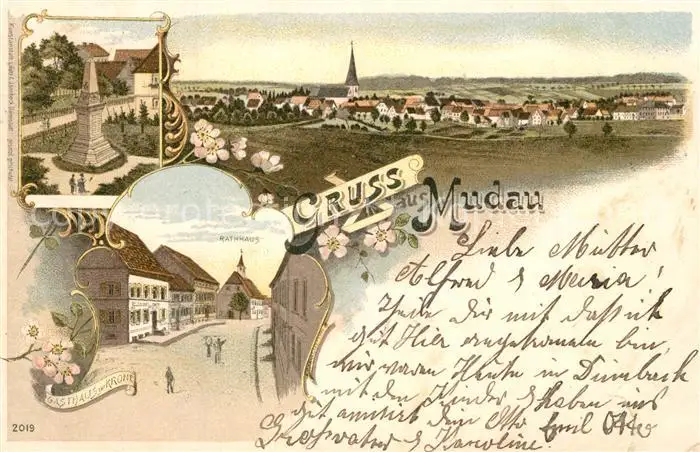 GRUSS
aus
Mudau
RATHHAUS
GASTHAUS z. KRONE
2019
Liebe Mutter
Alfred & Maria!
Theile Dir mit dass ich
gut Hier angekommen bin,
wir waren Heute in
mit den Kinder & haben uns
gut amüsirt dein Otto Emil Otto
Grossvater & Karoline.